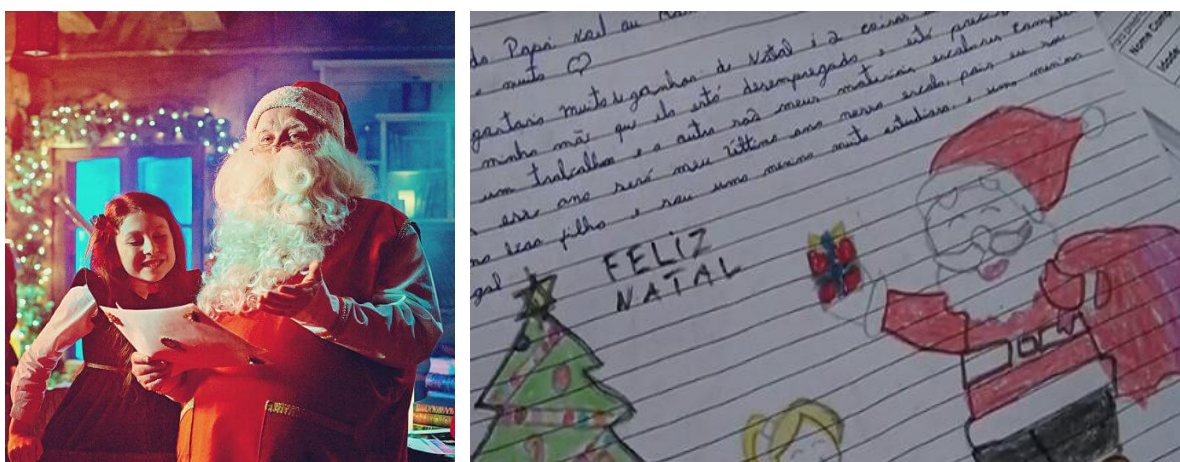 Papai Noel eu
muito ♡
gostaria muito e ganhar de Natal é 2 coisas
minha mãe que ela está desempregada, e está
um trabalho e a outra são meus materiais escolares
esse ano será meu último ano nessa escola, pois eu sou
boa filha e sou uma menina muito estudiosa, e uma menina
gal
FELIZ
NATAL
Nome Comp
Idade